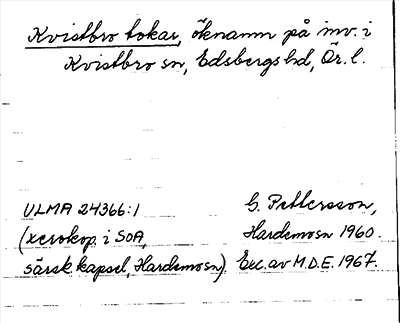 Kvistbro tokar, öknamn på inv. i
Kvistbro sn, Edsbergs hd, Ör. l.
ULMA 24366:1 G. Pettersson,
(xerokop. i SOA, Hardemo sn 1960.
särsk kapsel, Hardemo sn) Exc. av M.D.E. 1967.